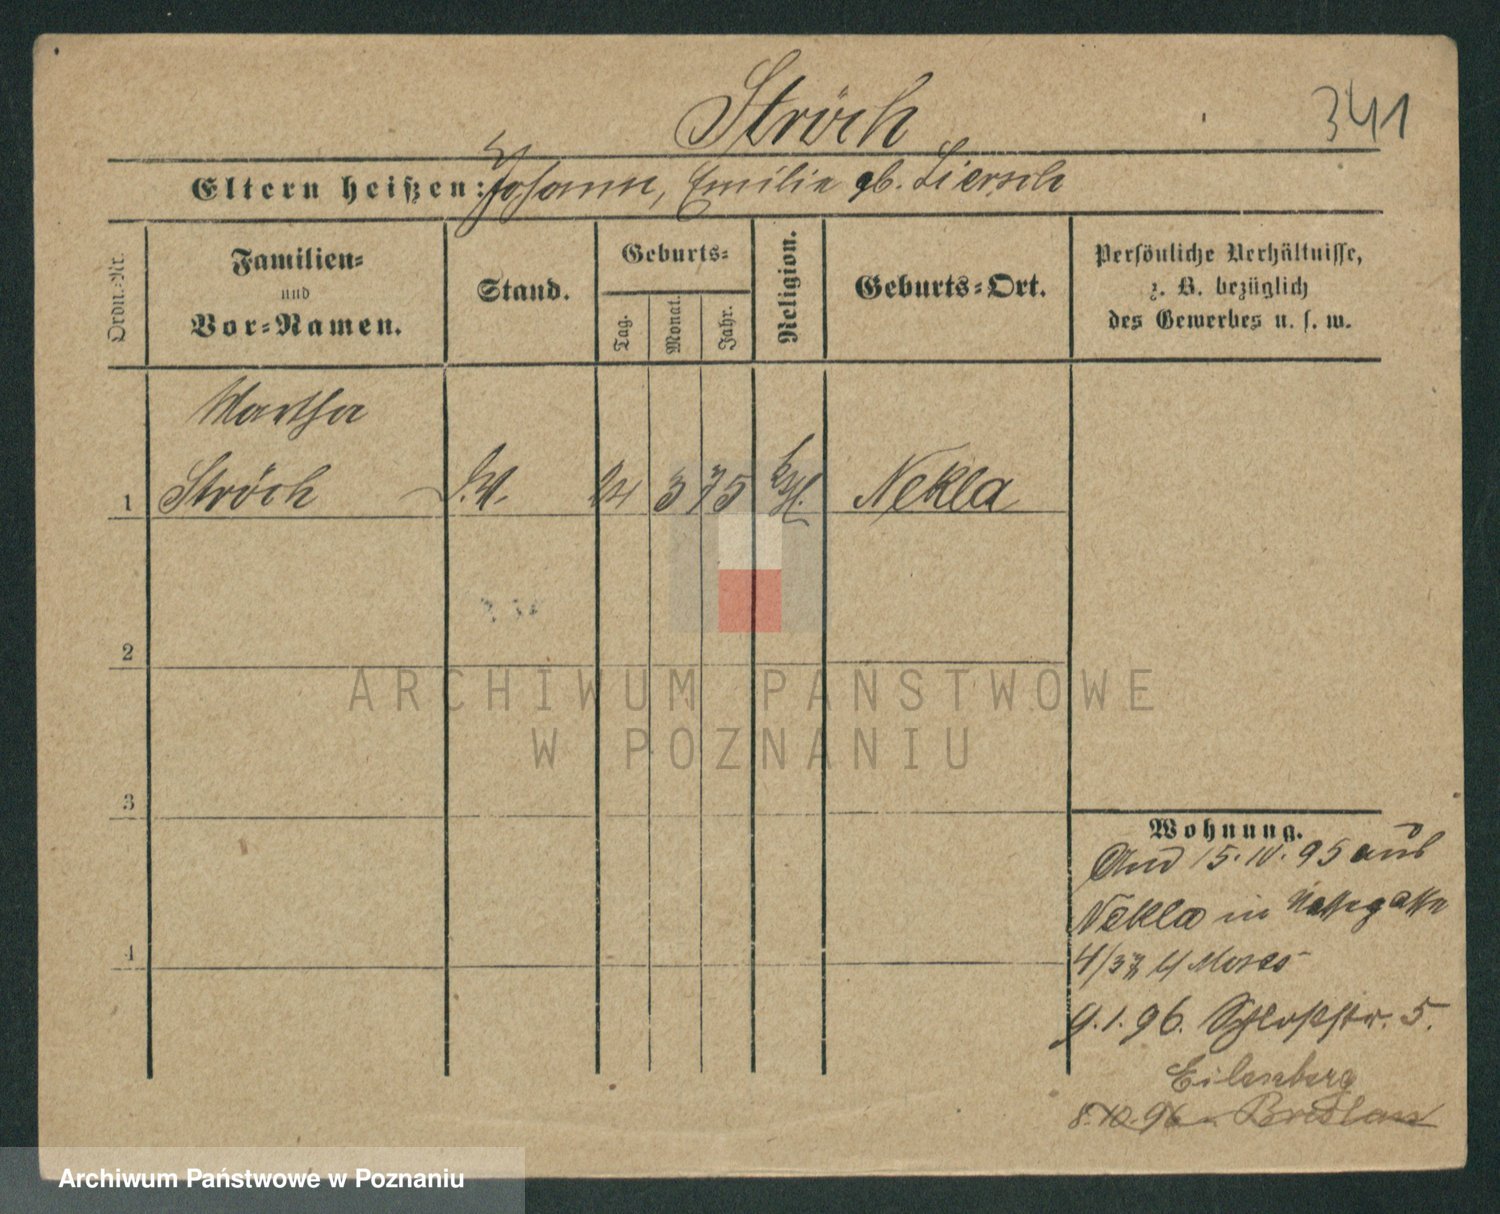 Ströch
341
Eltern heißen: Johann, Emilie gb. Liersch
Ordn.-Nr.
Familien-
und
Vor-Namen.
Stand.
Geburts-
Tag.
Monat.
Jahr.
Religion.
Geburts-Ort.
Persönliche Verhältnisse,
z. B. bezüglich
des Gewerbes u. s. w.
Martha
1 Ströch 24 3 75 Nekla
2
3
4
Wohnung.
15. 10. 95 aus
Nekla in
4/3 Moses
9. 1. 96. Schloßstr. 5.
Eilenberg
8. 10. 96 Breslau
ARCHIWUM PAŃSTWOWE
W POZNANIU
Archiwum Państwowe w Poznaniu